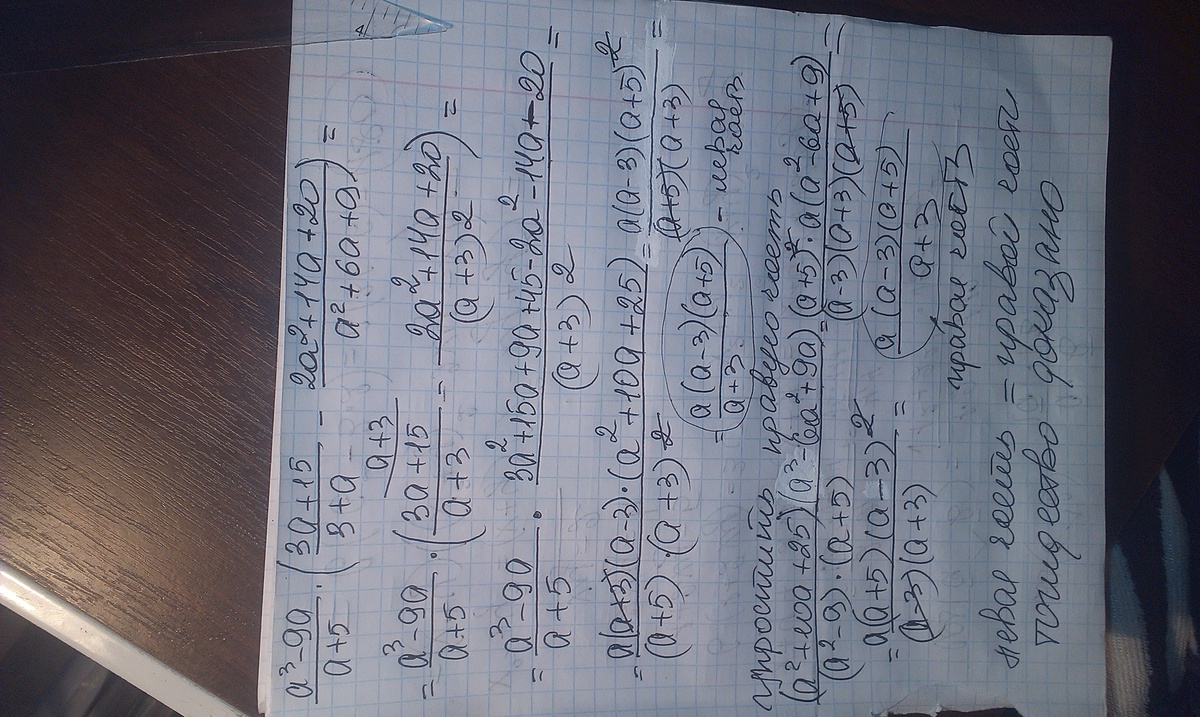 (a³-9a)/(a+5) · ((3a+15)/(3+a) - (2a²+14a+20)/(a²+6a+9)) =
a+3
= (a³-9a)/(a+5) · ((3a+15)/(a+3) - (2a²+14a+20)/(a+3)²) =
= (a³-9a)/(a+5) · (3a²+15a+9a+45-2a²-14a-20)/(a+3)² =
= (a(a+3)(a-3)·(a²+10a+25))/((a+5)·(a+3)²) = (a(a-3)(a+5)²)/((a+5)(a+3)) =
= (a(a-3)(a+5))/(a+3) - левая часть
упростить правую часть
((a²+10a+25)(a³-6a²+9a))/((a²-9)·(a+5)) = ((a+5)²·a(a²-6a+9))/((a-3)(a+3)(a+5)) =
= (a(a+5)(a-3)²)/((a-3)(a+3)) = (a(a-3)(a+5))/(a+3)
правая часть
левая часть = правой части
тождество доказано